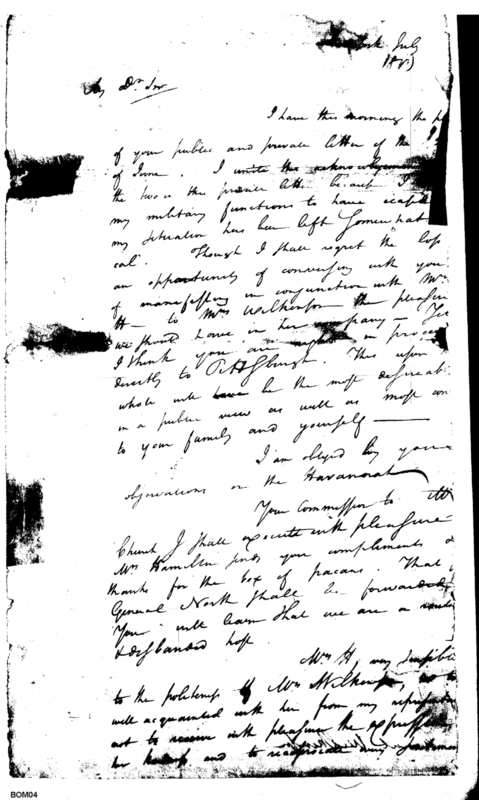 July
My Dr. Sir
I have this morning the
of your public and private letter of the
of June. I unite this acknowlegement
the two in the private letter because I
my military functions to have
my situation has been left somewhat
cal. Though I shall regret the loss
an opportunity of conversing with you
of manifesting in conjunction with Mrs
H— to Mrs Wilkinson the pleasure
we should have in her company—
I think you are in
directly to Pittsburgh. This upon
whole will be the most desireable
in a public view as well as most con
to your family and yourself —
I am obliged by your
observations on the Havannah
Your commission to Mr
Church I shall execute with pleasure
Mrs Hamilton sends you compliments &
thanks for the box of pacans. That
General North shall be forwarded
You will learn that we are a
disbanded host.
Mrs H. very sensible
to the politeness of Mrs Wilkinson,
well acquainted with her from my
not to receive with pleasure the expressions
her and to reciprocate
BOM04